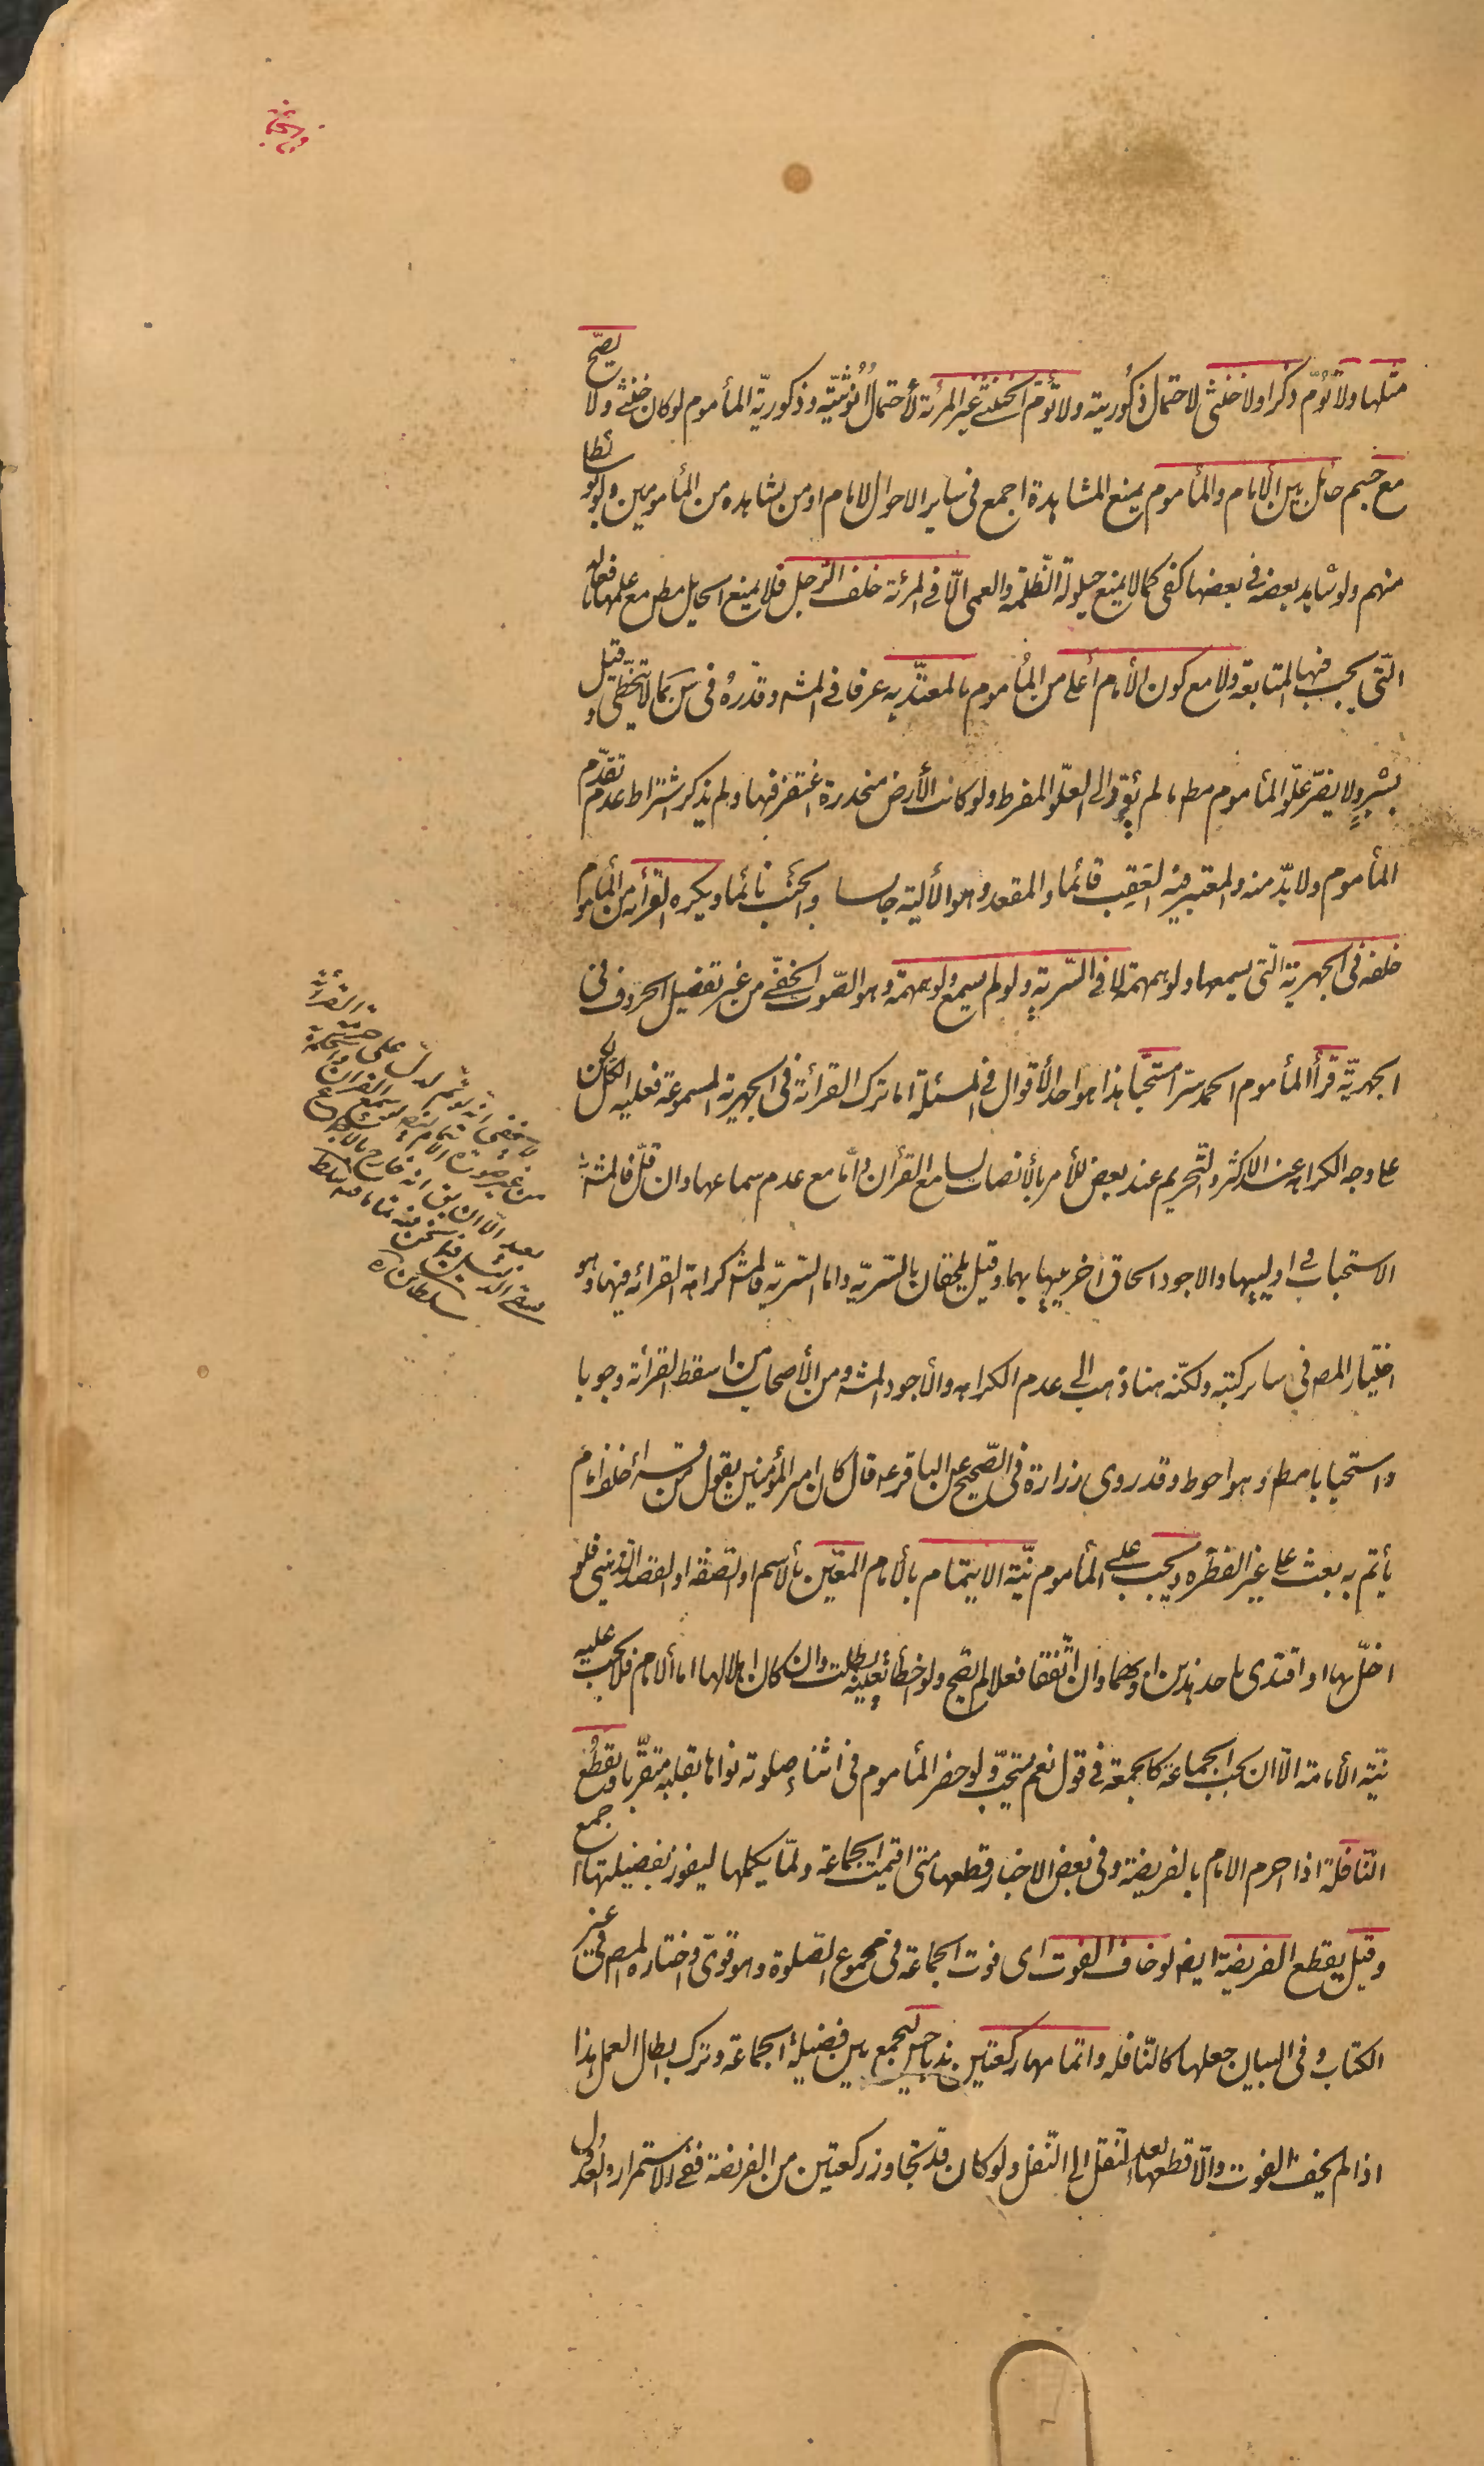 فی الجماعة
مثلها ولا تؤمّ ذكرا ولا خنثى لاحتمال ذكوريته ولا تؤمّ الخنثى غير المرئة لأحتمال اُنُوثيّته وذكوريّة المأموم لو كان خنثى ولا يصحّ
مع جسم حائل بين الأمام والمأموم يمنع المشاهدة اجمع فى ساير الاحوال للامام او من يشاهده من المأمومين ولو بوسائط
منهم ولو شاهد بعضه فى بعضها كفى كما لا يمنع حيلولة الظّلمة والعمى الّا فى المرئة خلف الرّجل فلا يمنع الحايل مطر مع علمها بافعاله
الّتى يجب فيها المتابعة ولا مع كون الأمام أعلى من المُأموم بالمعتدّ به عرفا فى المشه وقدرهُ فى س بما لا يتخطّى وقيل
بشبرٍ ولا يضرّ علّو المأموم مطر ما لم يؤدّ الى العلّو المفرط ولو كانت الأرض منحدرة اغتفر فيها ولم يذكر اشتراط عدم تقدّم
المأموم ولا بدّ منه والمعتبر فيه العَقِب قائما والمقعد وهو الألية جالسا والجنب نائما ويكره القرأئة من المأموم
خلفه فى الجهرية الّتى يسمعها ولو همهمة لا فى السّرية ولو لم يسمع ولو همهمة وهو الصّوت الخفّى من غير تفصيل الحروف فى
الجهريّة قرأ المأموم الحمد سّرا مستحّبا هذا هو احد الأقوال فى المسئلة اما ترك القرائة فى الجهرية المسموعة فعليه الكّل لكن
على وجه الكراهه عند الاكثر والتحريم عند بعض للأمر بالأنصات لسامع القرأن وامّا مع عدم سماعها وان قلّ فالمشه
الاستحباب فى اوليیها والاجود الحاق اخريیها بهما وقيل يلحقان بالسّريّة واما السّريّة فالمشه كراهة القرائه فيها وهو
اختيار المصر فى ساير كتبه ولكنّه هنا ذهب الى عدم الكراهه والأجود المشه ومن الأصحاب من اسقط القرأئة وجوبا
واستحبابا مطر وهو احوط وقد روى زرارة فى الصّحيح عن الباقر عه قال كان امير المؤمنين يقول من قرأ خلف امام
يأتم به بعث على غير الفطره ويجب على المأموم نيّة الايتمام بالأمام المعيّن بالأسم او الصّفة او القصد الذّهنى فلو
اخلّ بها او اقتدى باحد هذين او بهما وان اتّفقا فعلا لم يصّح ولو اخطأ تعيينه بطلت وان كان اهلا لها اما الأمام فلا يجب عليه
نيّة الأمامة الّا ان يجب الجماعة كالجمعة فى قول نعم يستحبّ ولو حضر المأموم فى اثناء صلوته نواها بقلبه متقرّبا ويقطُع
النّافلة اذا احرم الامام بالفريضة وفى بعض الاخبار قطعها متى اقيمت الجماعة ولمّا يكملها ليفوز بفضيلتها اجمع
وقيل يقطع الفريضة ايضر لو خاف الفوت اى فوت الجماعة فى مجموع الصّلوة وهو قوىّ واختاره المصر فى غير
الكتاب وفى البيان جعلها كالنّافله واتمامها ركعتين ندبا حسن ليجمع بين فضيلة الجماعة وترك ابطال العمل هذا
اذا لم يخف الفوت والّا قطعها بعد النّقل الى النّفل ولو كان قد تجاوز ركعتين من الفريضة ففى الاستمرار والعدول